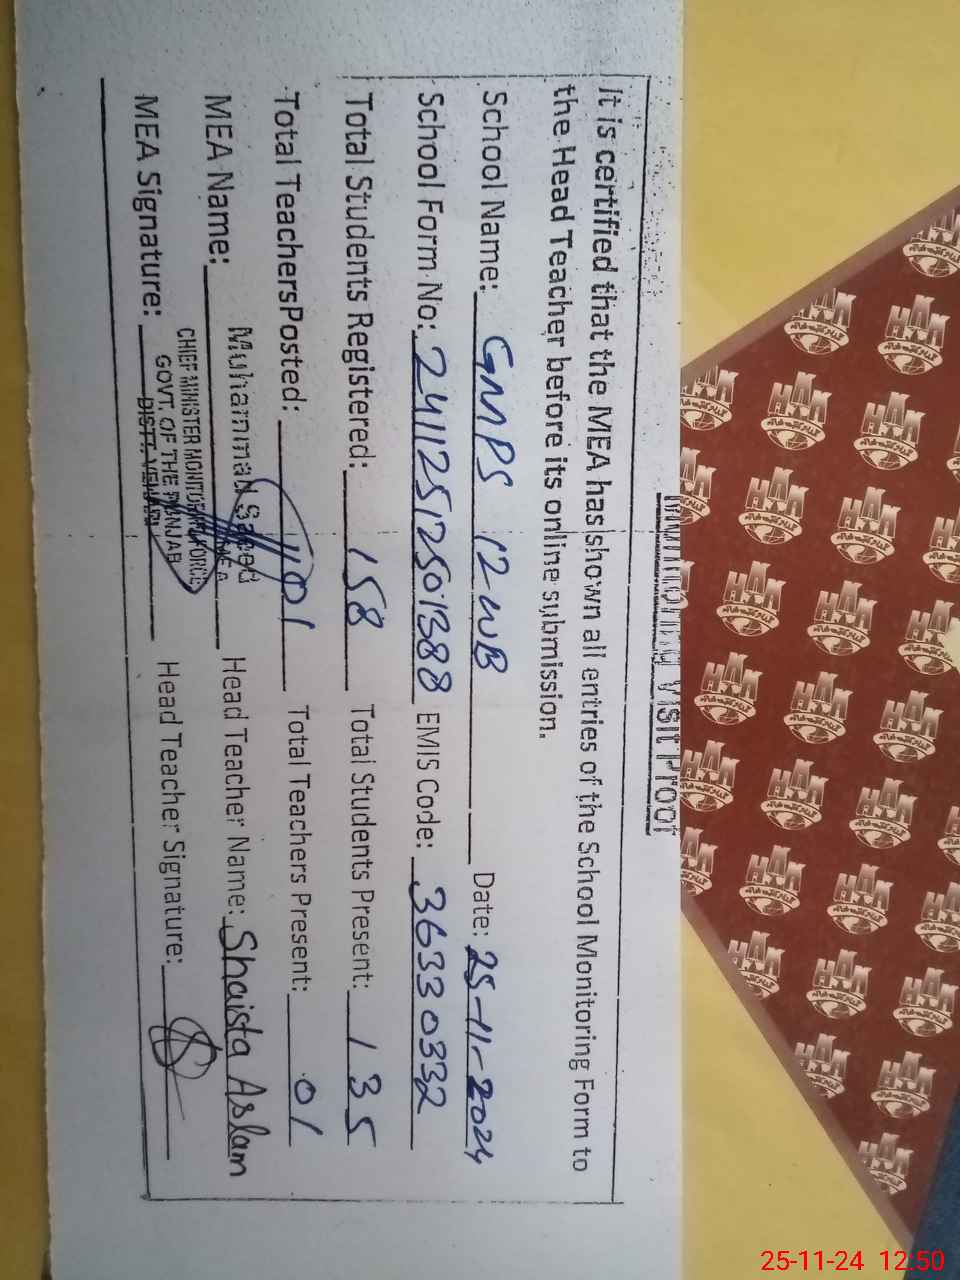 Monitoring Visit Proof
It is certified that the MEA has shown all entries of the School Monitoring Form to
the Head Teacher before its online submission.
School Name: GMPS 12 WB Date: 25-11-2024
School Form No: 24112512501388 EMIS Code: 36330332
Total Students Registered: 158 Total Students Present: 135
Total TeachersPosted: 01 Total Teachers Present: 01
MEA Name: Muhammad Saeed Head Teacher Name: Shaista Aslam
MEA
CHIEF MINISTER MONITORING FORCE
GOVT. OF THE PUNJAB
DISTT. VEHARI
MEA Signature: Head Teacher Signature:
25-11-24 12:50